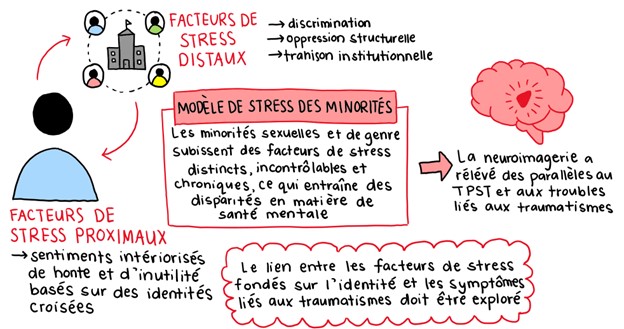 FACTEURS DE
STRESS
DISTAUX
→ discrimination
→ oppression structurelle
→ trahison institutionnelle
MODÈLE DE STRESS DES MINORITÉS
Les minorités sexuelles et de genre
subissent des facteurs de stress
distincts, incontrôlables et
chroniques, ce qui entraîne des
disparités en matière de
santé mentale
La neuroimagerie a
rélévé des parallèles au
TPST et aux troubles
liés aux traumatismes
FACTEURS DE
STRESS PROXIMAUX
→ sentiments intériorisés
de honte et d'inutilité
basés sur des identités
croisées
Le lien entre les facteurs de stress
fondés sur l'identité et les symptômes
liés aux traumatismes doit être exploré